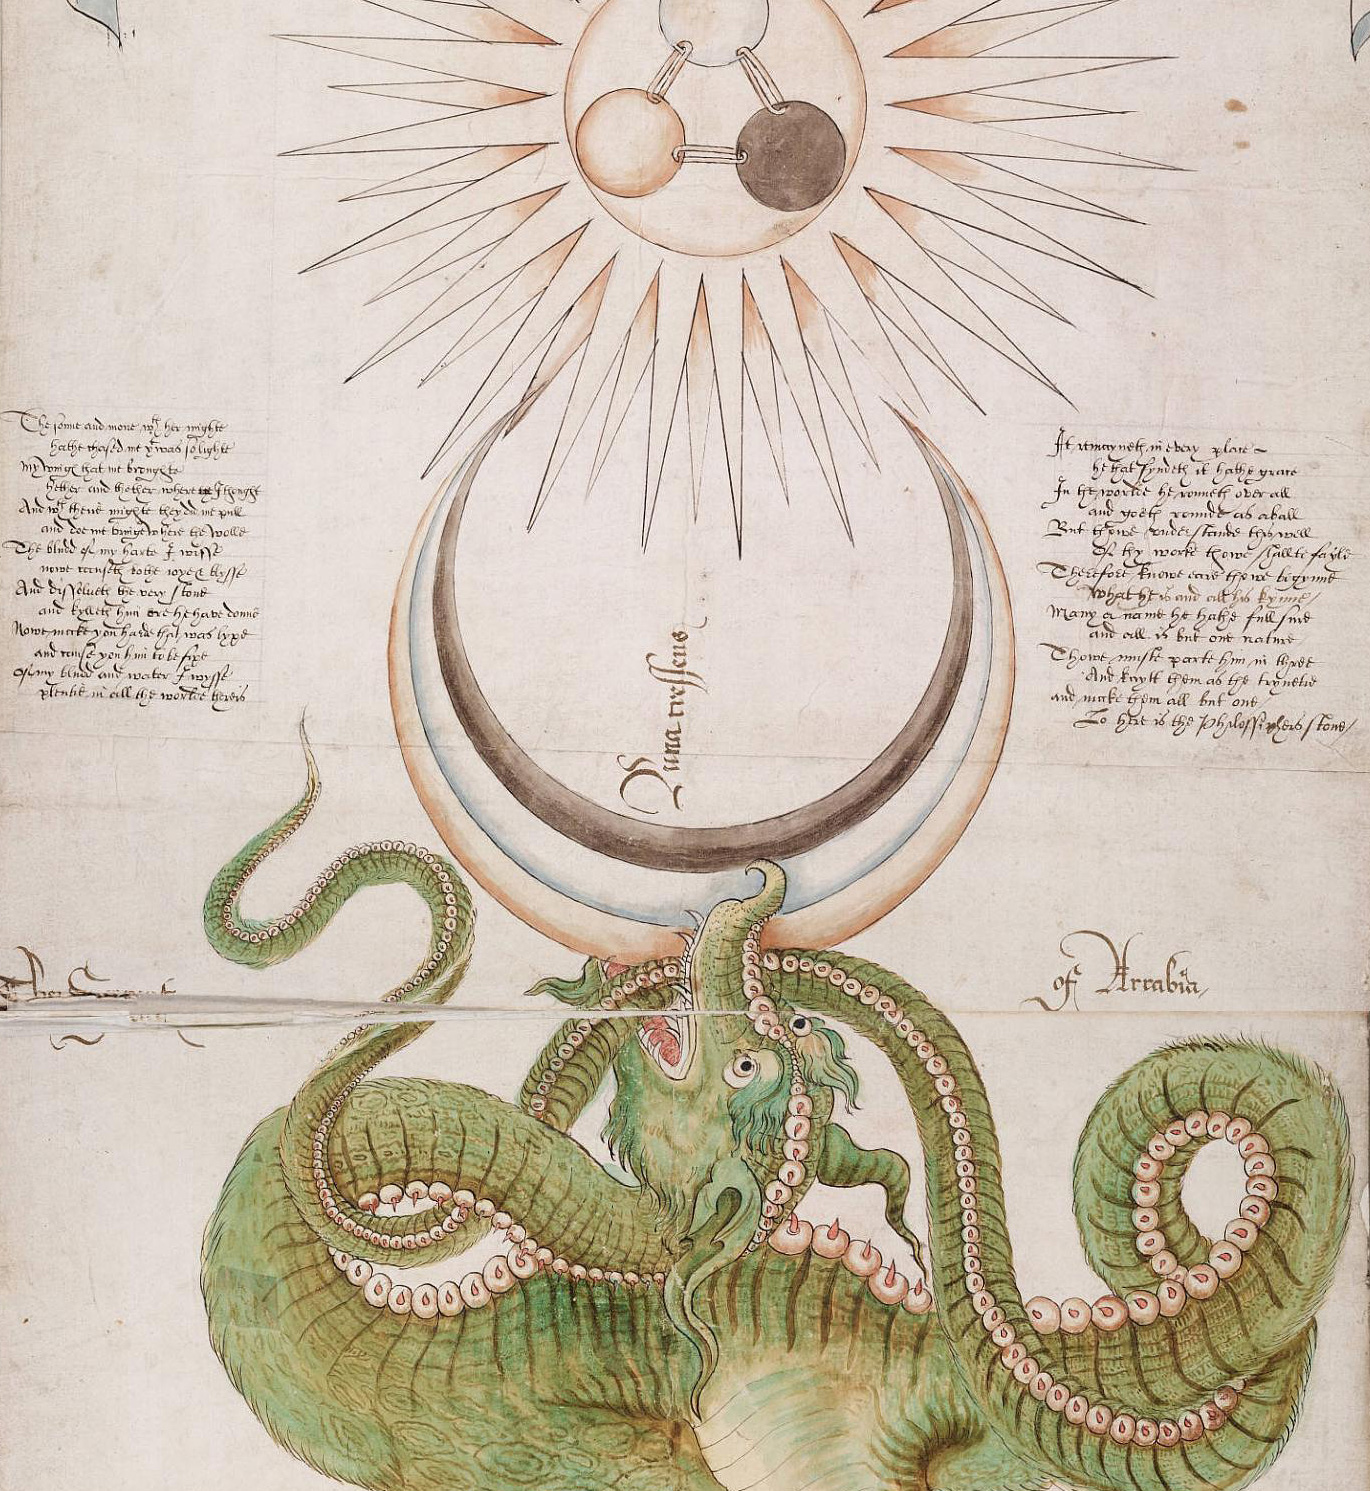 The sonne and mone wth her mighte
hathe chased me yt was so light
my wings that me broughte
hether and thether where I thought
And wth there mighte they do me pull
and doe me bringe where the wolle
The bludd of my harte I wisse
nowe causeth bothe ioye & blysse
And dissolueth the very stone
and kylleth him ere he haue donne
Nowe make you harde that was lyxe
and cause you him to be fixe
Of my bludd and water I wysse
plentie in all the worlde there is
It remayneth in every place
he that fyndeth it hathe grace
In the worlde he ronneth over all
and goeth rounde as a ball
But thowe understande this well
Of thy worke thowe shallte fayle
Therefore knowe eare thowe begynne
What he is and all his kynne
Many a name he hathe full sure
and all is but one nature
Thowe muste parte him in three
And knytt them as the trynetie
and make them all but one
Lo here is the Philossiphers stone
Luna cressens
of Arrabia